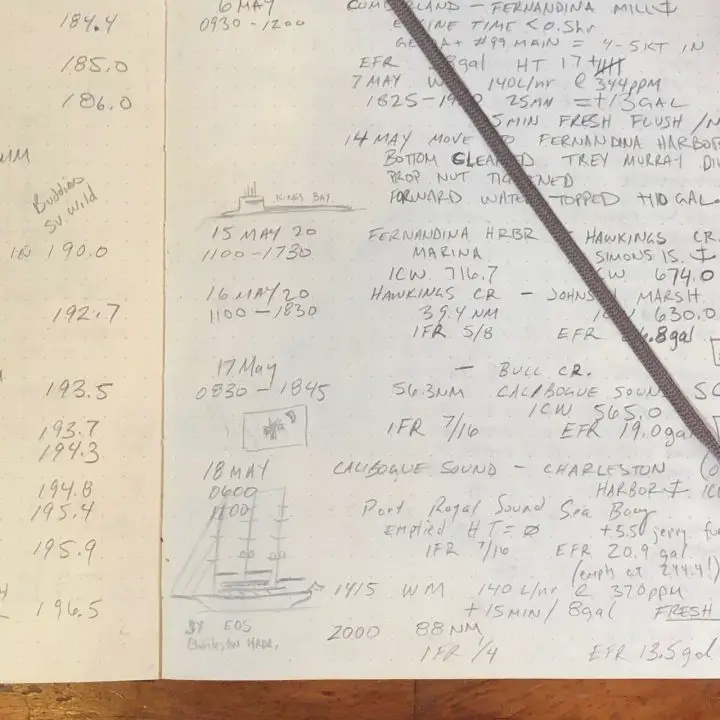 184.4
185.0
186.0
Buddies
sv. wild
IN 190.0
192.7
193.5
193.7
194.3
194.8
195.4
195.9
196.5
6 MAY CUMBERLAND - FERNANDINA MILL
0930 - 1200 ENGINE TIME < 0.5hr
#99 MAIN = 4-5KT IN
EFR gal HT 17
7 MAY 140L/hr @ 344ppm
1825- 25MN =+13GAL
5MIN FRESH FLUSH
14 MAY MOVE TO FERNANDINA HARBOR
BOTTOM CLEANED TREY MURRAY
PROP NUT TIGHTENED
FORWARD WATER TOPPED +10 GAL.
KINGS BAY
15 MAY 20 FERNANDINA HRBR - HAWKINGS CR.
1100 - 1730 MARINA SIMONS IS.
ICW 716.7 ICW 674.0
16 MAY 20 HAWKINGS CR - JOHNSON MARSH
1100 - 1830 39.4 NM ICW 630.0
IFR 5/8 EFR 6.8gal
17 May - BULL CR.
0830 - 1845 56.3NM CALIBOGUE SOUND SC
ICW 565.0
IFR 7/16 EFR 19.0gal
18 MAY CALIBOGUE SOUND - CHARLESTON
0600 HARBOR
1100 Port Royal Sound Sea Buoy
Emptied HT = Ø +5.5 jerry
IFR 7/16 EFR 20.9 gal
(empty at 244.4!)
1415 WM 140 L/hr @ 370ppm
+15MIN/ 8gal FRESH
SY EOS
Charleston HRBR.
2000 88NM
IFR 1/4 EFR 13.5gal